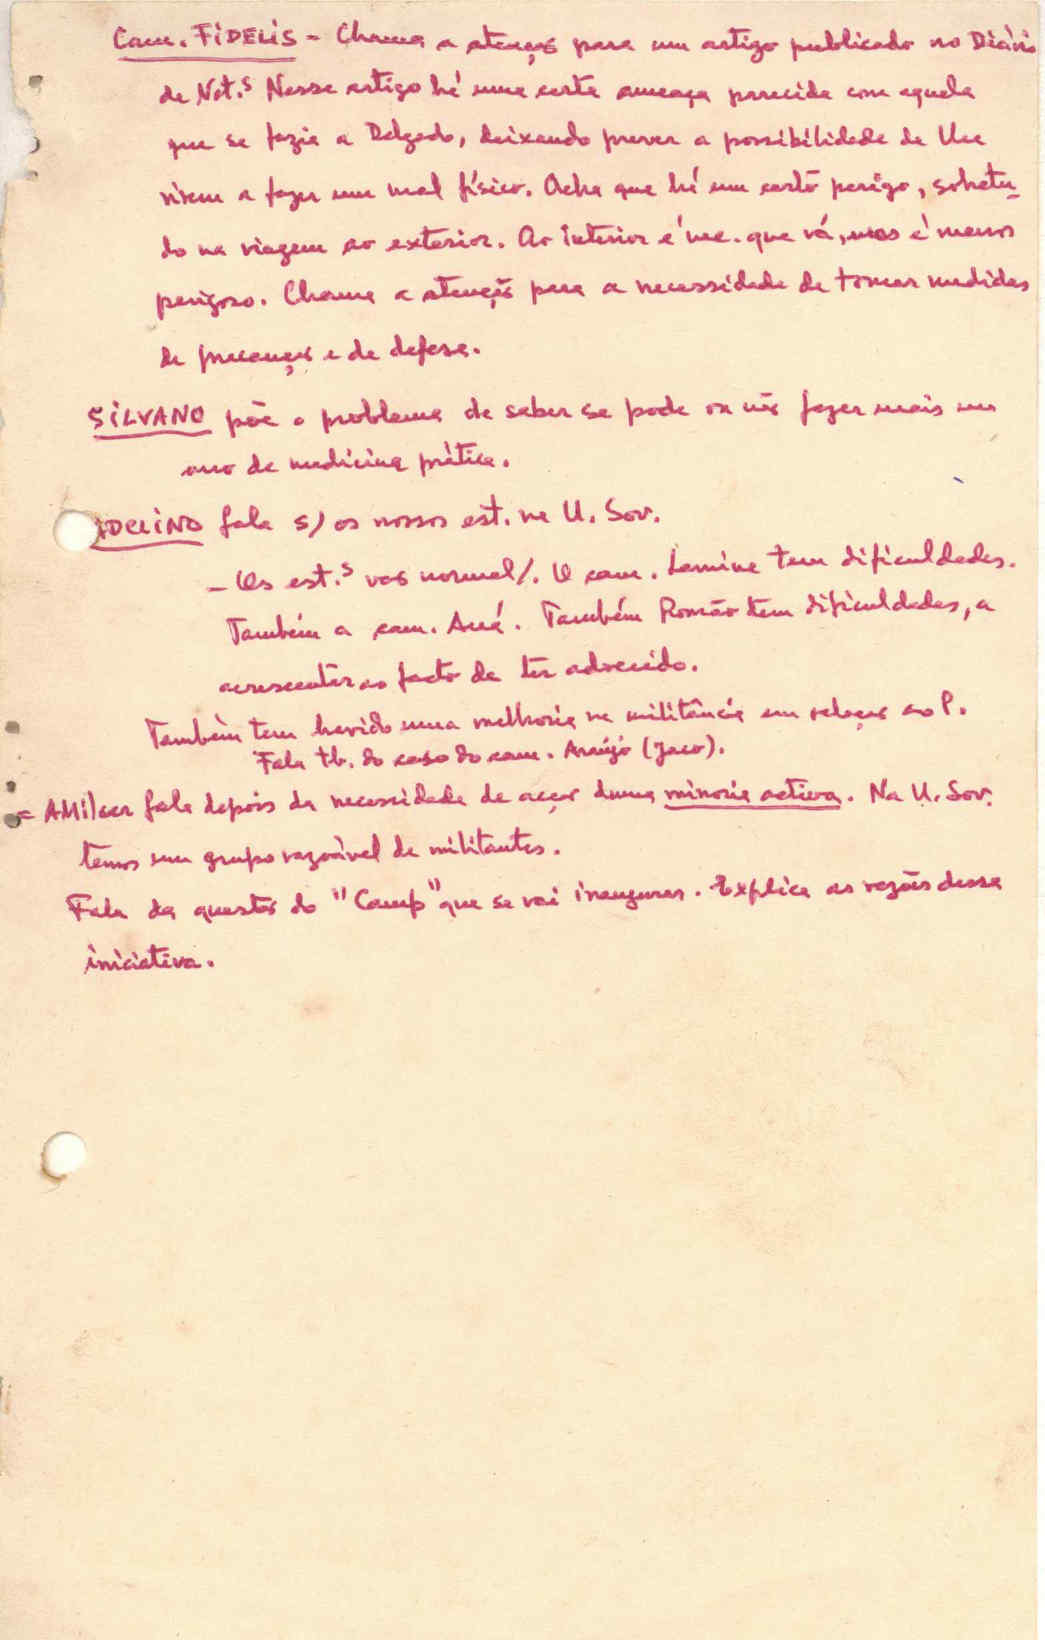 Cam. FIDELIS - Chama a atenção para um artigo publicado no Diário
de Not.s Nesse artigo há uma certa ameaça parecida com aquela
que se fazia a Delgado, deixando prever a possibilidade de lhe
virem a fazer um mal físico. Acha que há um certo perigo, sobretu_
do na viagem ao exterior. Ao interior é nec. que vá, mas é menos
perigoso. Chama a atenção para a necessidade de tomar medidas
de precaução e de defesa.
SILVANO põe o problema de saber se pode ou não fazer mais um
ano de medicina prática.
ADELINO fala s/ os nossos est. na U. Sov.
- Os est.s vão normal/. O cam. Lamine tem dificuldades.
Também a cam. Aué. Também Romão tem dificuldades, a
acrescentar ao facto de ter adoecido.
Também tem havido uma melhoria na militância em relação ao P.
Fala tb. do caso do cam. Araújo (Jaco).
= AMilcar fala depois da necessidade de acção duma minoria activa. Na U. Sov.
temos um grupo razoável de militantes.
Fala da questão do "Camp" que se vai inaugurar. Explica as razões dessa
iniciativa.